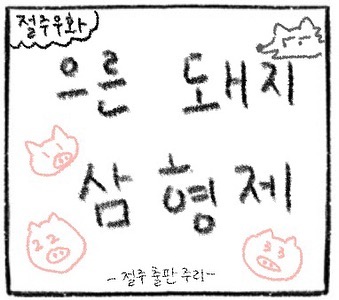 절주우화
으른 돼지
삼 형 제
22
33
- 절주 출판 주리 -